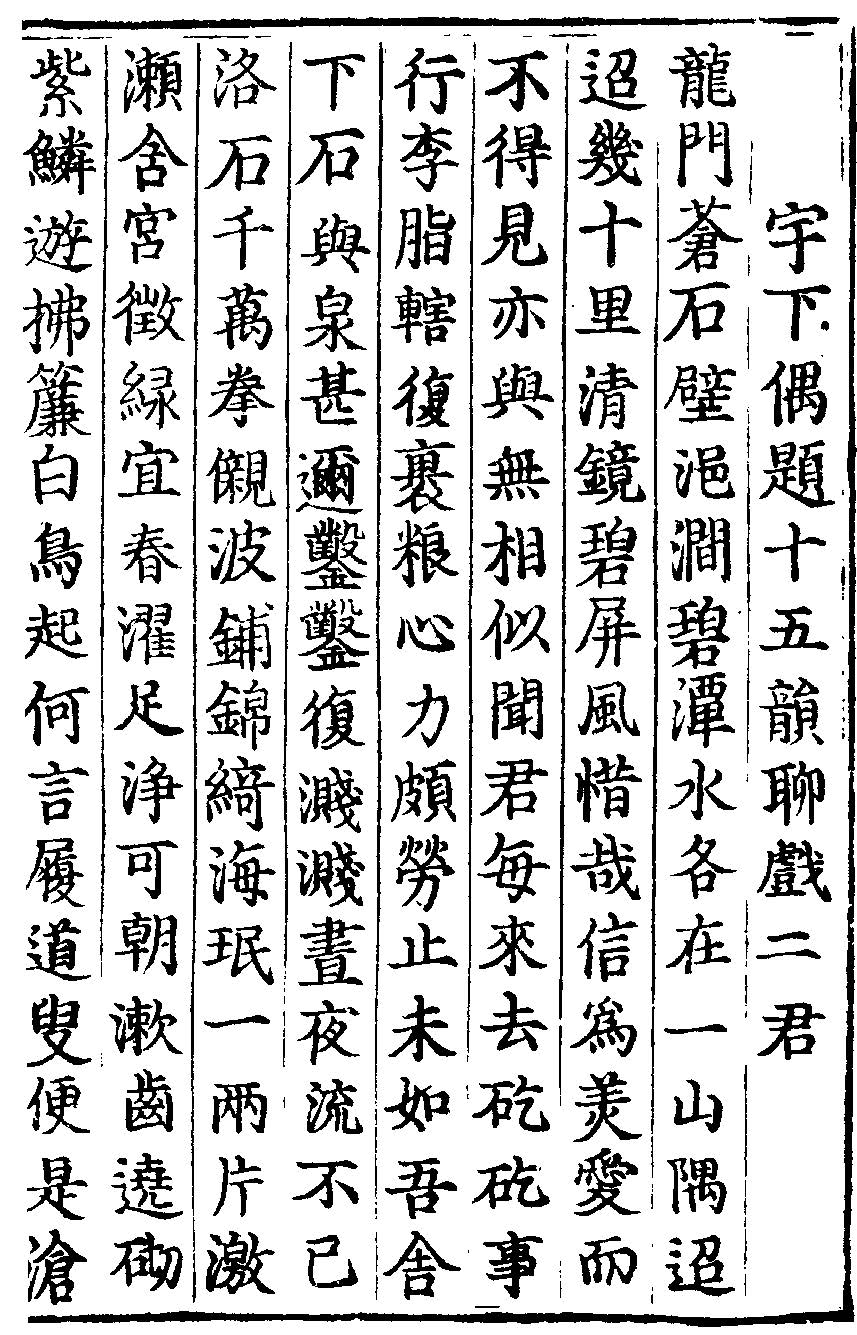 宇下偶題十五韻聊戲二君
龍門蒼石壁浥澗碧潭水各在一山隅迢
迢幾十里清鏡碧屏風惜哉信爲羙愛而
不得見亦與無相似聞君每來去矻矻事
行李脂轄復裹粮心力頗勞止未如吾舎
下石與泉甚邇鑿鑿復濺濺晝夜流不已
洛石千萬拳儭波鋪錦綺海珉一兩片激
瀬含宮徵緑宜春濯足浄可朝漱齒遶砌
紫鱗遊拂簾白鳥起何言履道叟便是滄